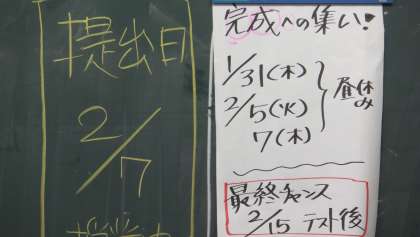 提出日
2/7
完成への集い!
1/31(木)
2/5(火)
7(木)
昼休み
最終チャンス
2/15 テスト後